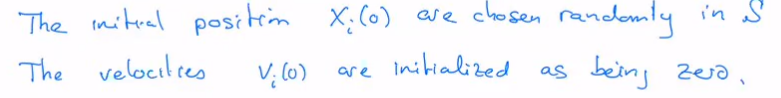 The initial position X_i(0) are chosen randomly in S
The velocities V_i(0) are initialized as being zero.